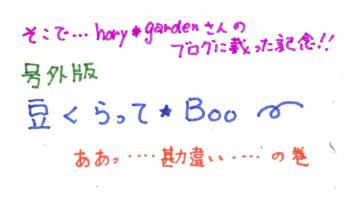 そこで…hory*gardenさんの
ブログに載った記念!!
号外版
豆くらって★Boo
ああっ‥‥勘違い‥‥の巻